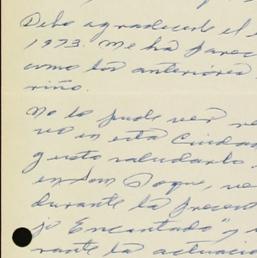 Debo agradecerle el
1973. Me ha parec
como los anteriores
riño.
No lo pude ver
vo en esta Ciudad
gusto saludarlo
en San Roque,
durante la presen
jo Encantado" y
rante la actuació